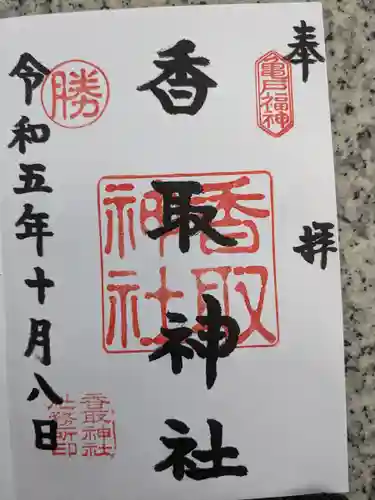 奉拝
亀戸福神
香取神社
香取神社
勝
令和五年十月八日
香取神社
社務所印